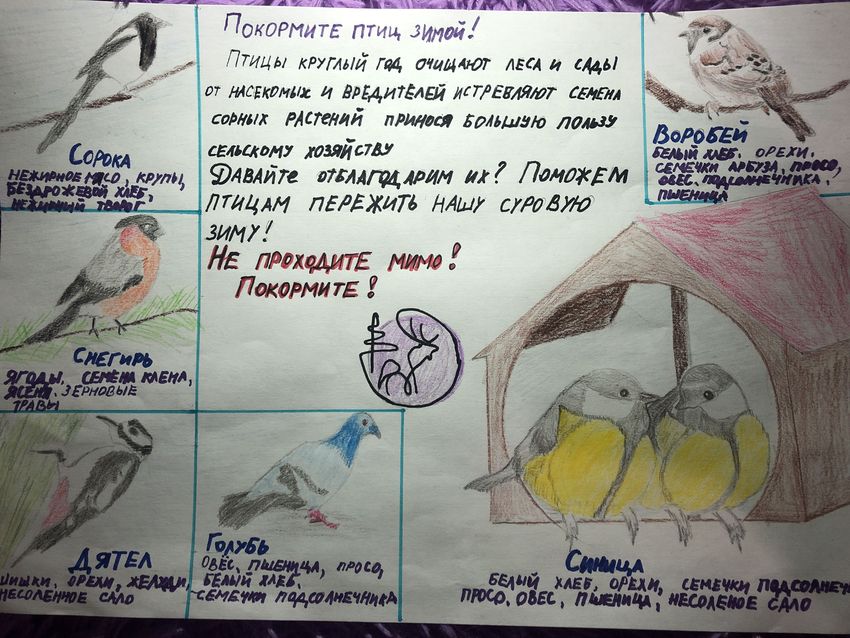 Покормите птиц зимой!
Птицы круглый год очищают леса и сады
от насекомых и вредителей истревляют семена
сорных растений принося большую пользу
сельскому хозяйству
Давайте отблагодарим их? Поможем
птицам пережить нашу суровую
зиму!
Не проходите мимо!
Покормите!
Сорока
нежирное мясо, крупы,
бездрожевой хлеб,
нежирный творог
Воробей
белый хлеб, орехи,
семечки арбуза, просо,
овес, подсолнечника,
пшеница
Снегирь
ягоды, семена клена,
ясеня, зерновые
травы
Дятел
шишки, орехи, желуди,
несоленое сало
Голубь
овёс, пшеница, просо,
белый хлеб,
семечки подсолнечника
Синица
белый хлеб, орехи, семечки подсолнеч
просо, овес, пшеница, несоленое сало